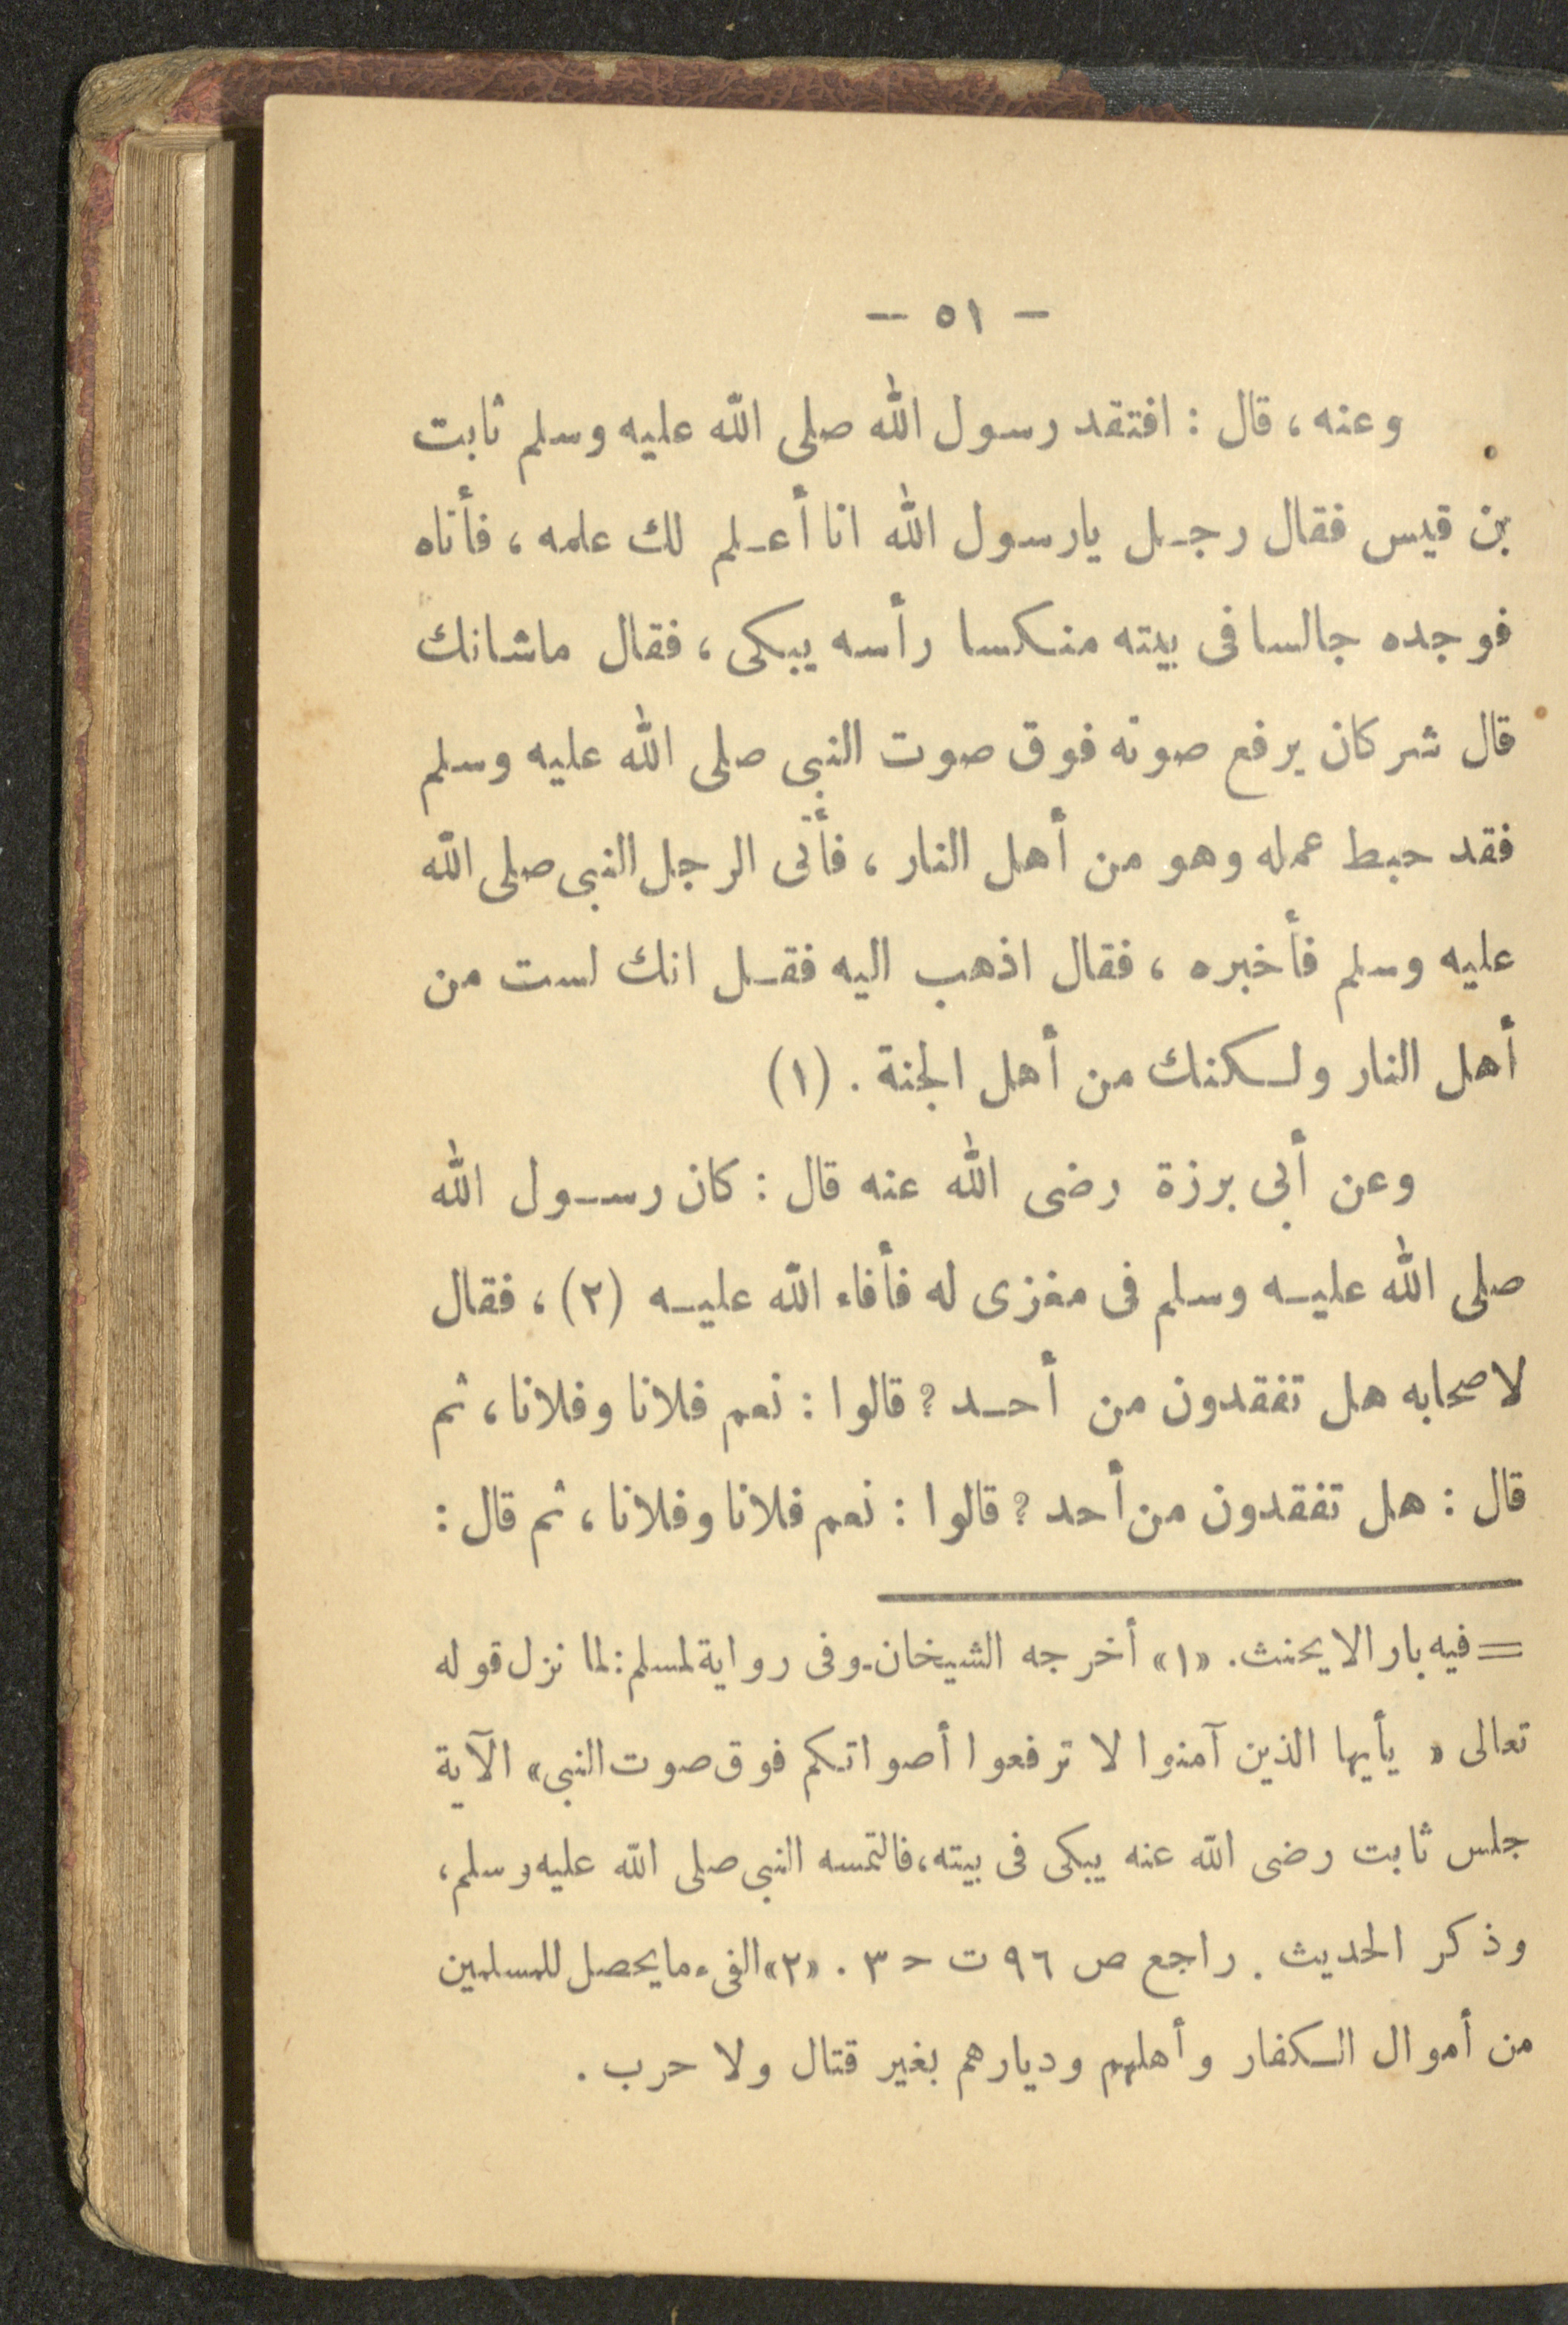 — ٥١ —
وعنه، قال : افتقد رسول الله صلى الله عليه وسلم ثابت
بن قيس فقال رجل يارسول الله انا أعلم لك علمه، فأتاه
فوجده جالسا فى بيته منكسا رأسه يبكى، فقال ماشانك
قال شر كان يرفع صوته فوق صوت النبى صلى الله عليه وسلم
فقد حبط عمله وهو من أهل النار، فأتى الرجل النبى صلى الله
عليه وسلم فأخبره، فقال اذهب اليه فقل انك لست من
أهل النار ولكنك من أهل الجنة . (١)
وعن أبى برزة رضى الله عنه قال : كان رسول الله
صلى الله عليه وسلم فى مغزى له فأفاء الله عليه (٢)، فقال
لاصحابه هل تفقدون من أحد ? قالوا : نعم فلانا وفلانا، ثم
قال : هل تفقدون من أحد ? قالوا : نعم فلانا وفلانا، ثم قال :
= فيه بار الايحنث. «١» أخرجه الشيخان-وفى رواية لمسلم: لما نزل قوله
تعالى « يأيها الذين آمنوا لا ترفعوا أصواتكم فوق صوت النبى» الآية
جلس ثابت رضى الله عنه يبكى فى بيته، فالتمسه النبى صلى الله عليه وسلم،
وذكر الحديث . راجع ص ٩٦ ت ح ٣ . «٢» الفىء مايحصل للمسلمين
من أموال الكفار وأهلهم وديارهم بغير قتال ولا حرب .